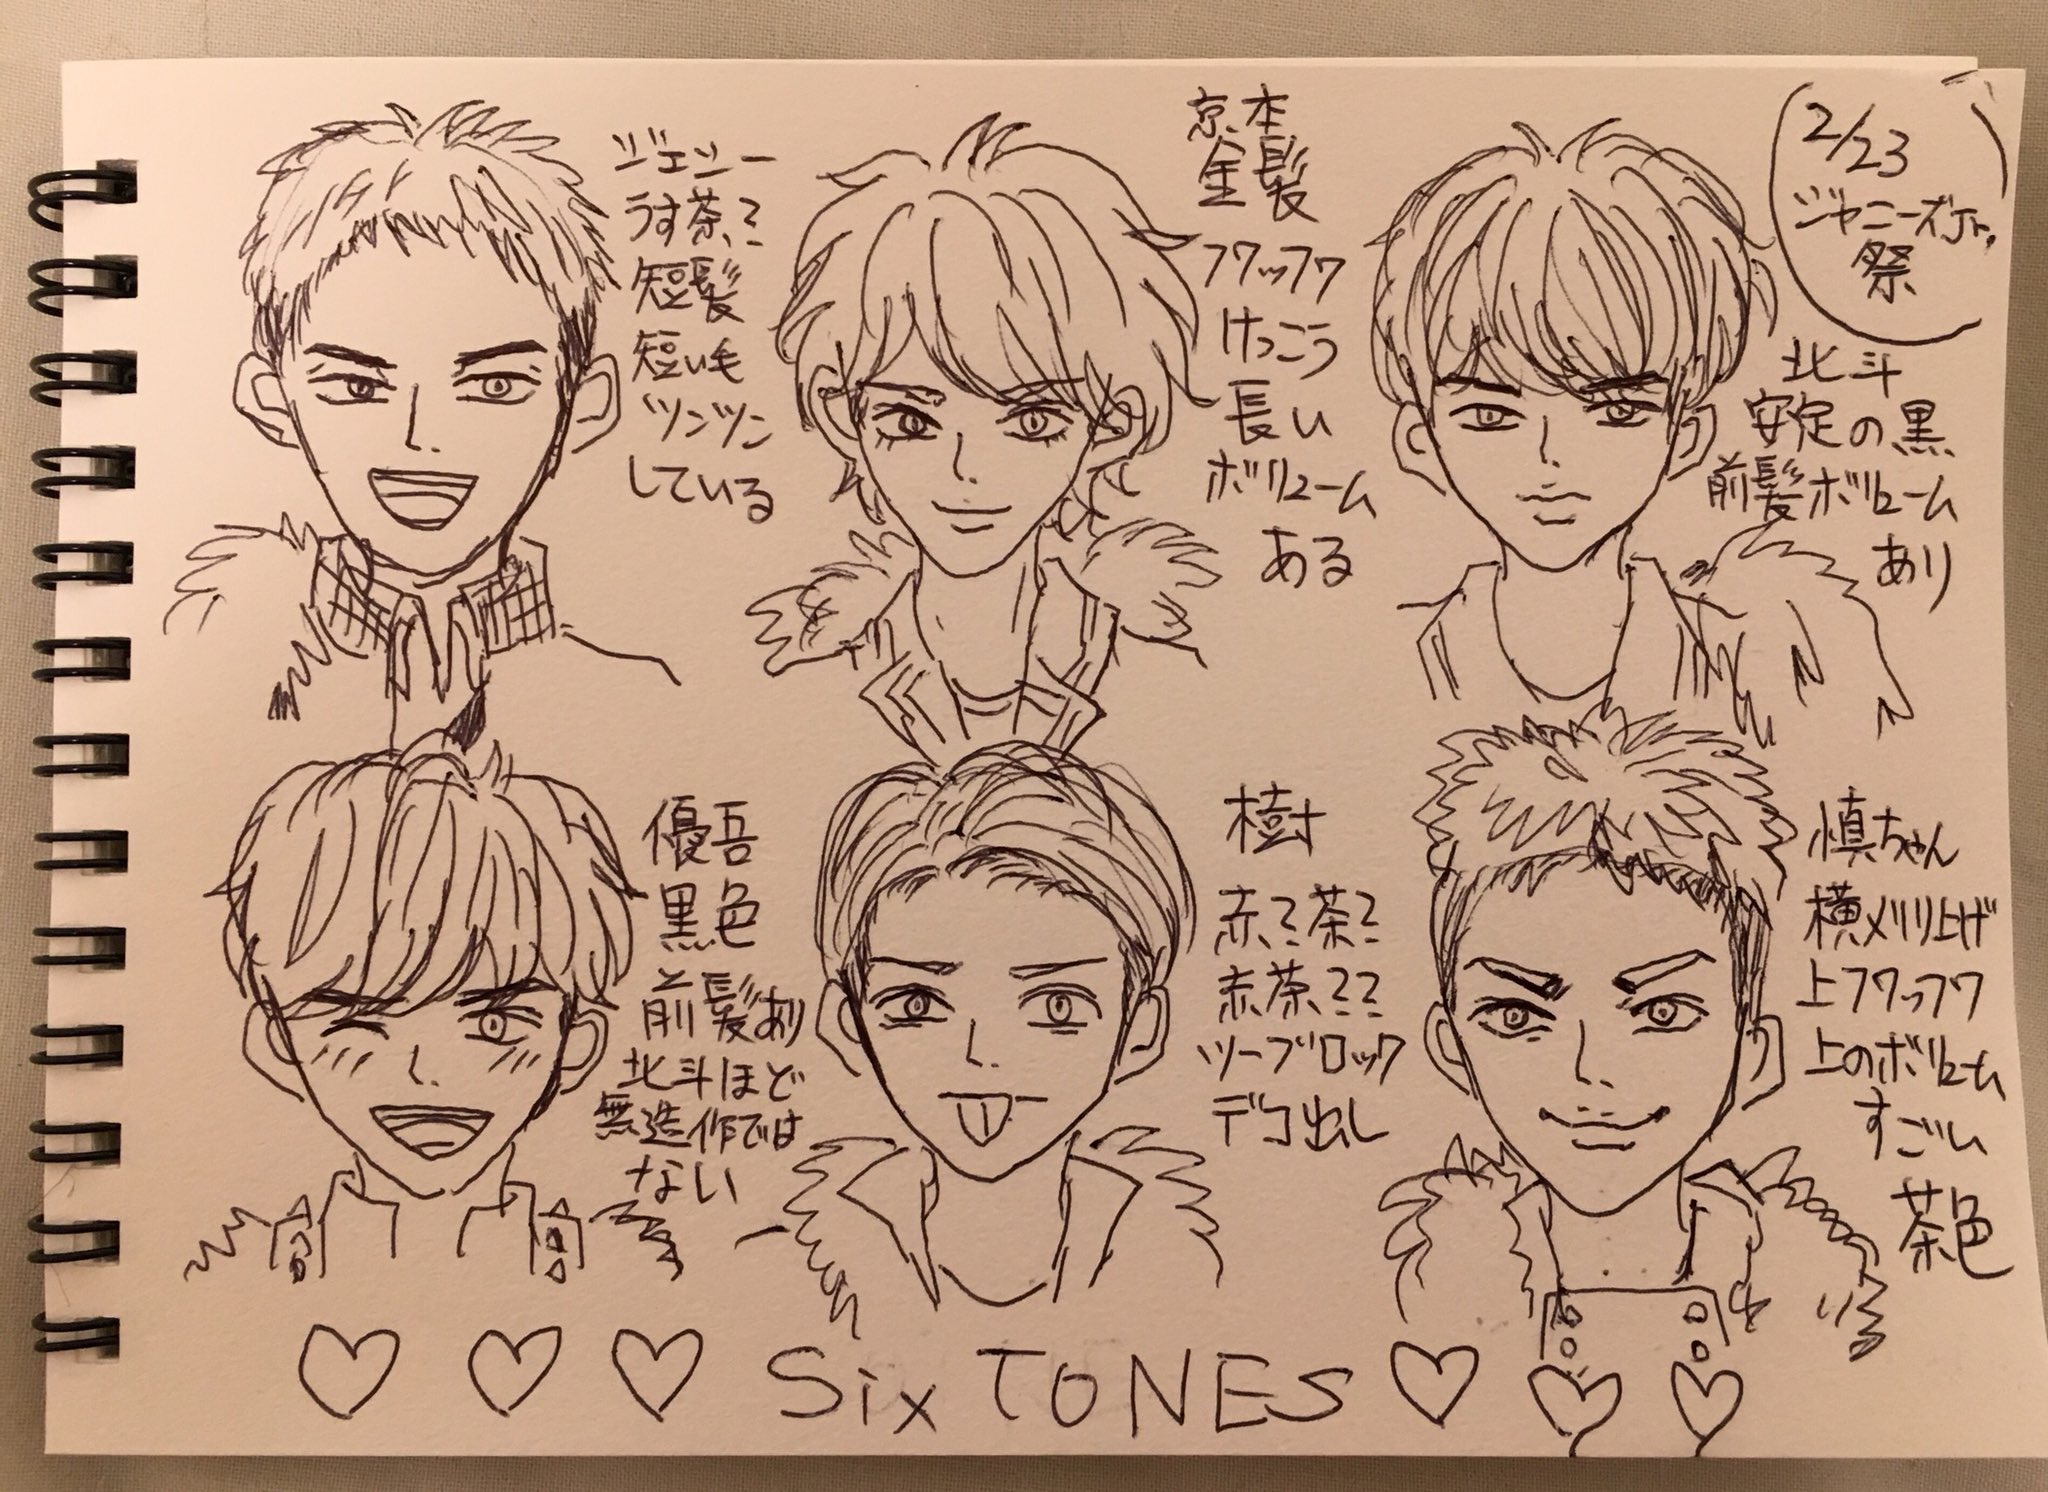 ジェシー
うす茶？
短髪
短い毛
ツンツン
している
京本
金髪
フワッフワ
けっこう
長い
ボリューム
ある
2/23
ジャニーズJr.
祭
北斗
安定の黒
前髪ボリューム
あり
優吾
黒色
前髪あり
北斗ほど
無造作では
ない
樹
赤？茶？
赤茶？？
ツーブロック
デコ出し
慎ちゃん
横刈り上げ
上フワッフワ
上のボリューム
すごい
茶色
SixTONES